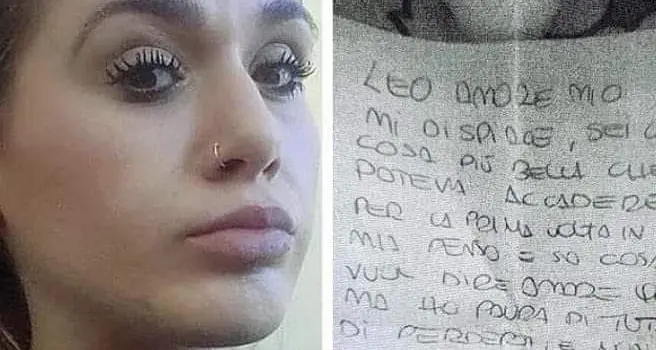 LEO AMORE MIO
MI DISPIACE, SEI
COSA PIÙ BELLA CHE
POTEVA ACCADERE
PER LA PRIMA VOLTA IN
MIA PENSO E SO COSA
VUOL DIRE AMORE
MA HO PAURA DI TUT
DI PERDERTI E